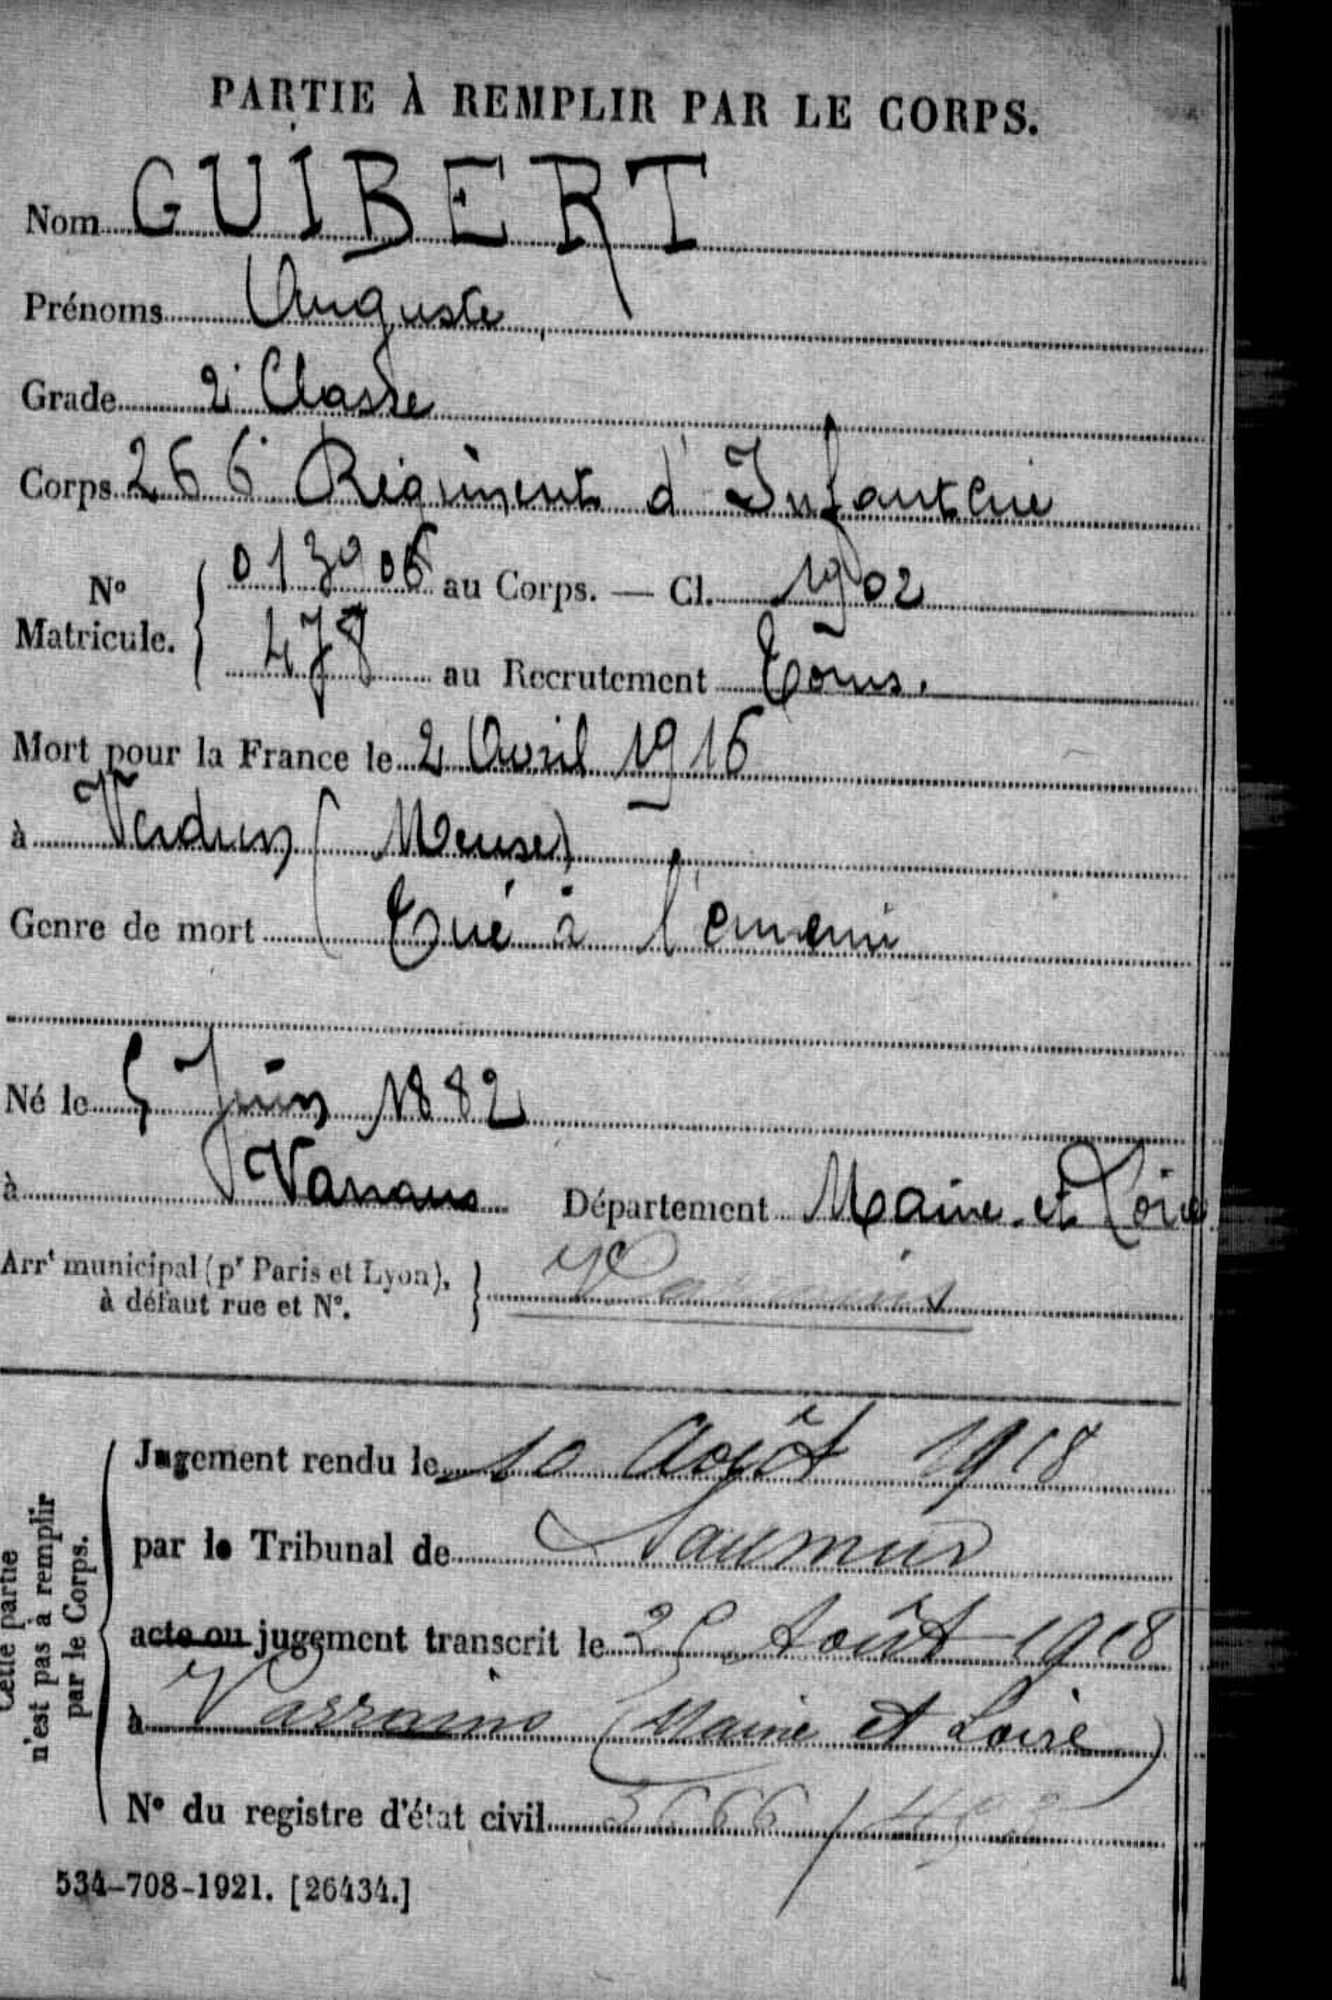 PARTIE À REMPLIR PAR LE CORPS.
Nom GUIBERT
Prénoms Auguste
Grade 2e Classe
Corps 266e Régiment d'Infanterie
No Matricule. 013906 au Corps. — Cl. 1902
478 au Recrutement Tours.
Mort pour la France le 2 Avril 1916
à Verdun (Meuse)
Genre de mort Tué à l'ennemi
Né le 5 Juin 1882
à Varrains Département Maine-et-Loire
Arrt municipal (pr Paris et Lyon),
à défaut rue et No.
Varrains
Cette partie
n'est pas à remplir
par le Corps.
Jugement rendu le 10 Août 1918
par le Tribunal de Saumur
acte ou jugement transcrit le 25 Août 1918
à Varrains (Maine et Loire)
No du registre d'état civil
534-708-1921. [26434.]